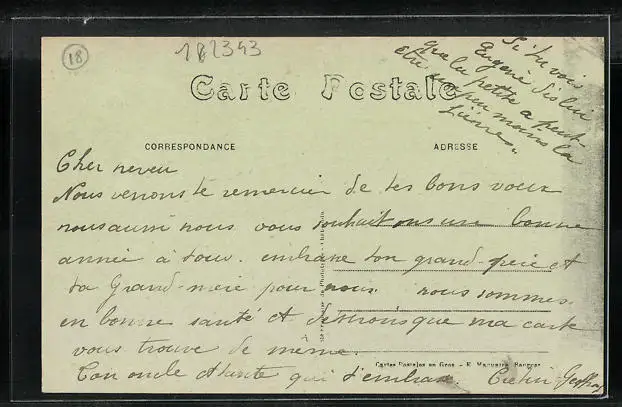 18
182393
Si tu vois
Eugenie dis lui
que la petite a peut
être un peu moins la
fièvre.
Carte Postale
CORRESPONDANCE
ADRESSE
Cher neveu
Nous venons te remercier de tes bons voeux
nous aussi nous vous souhaitons une bonne
année à tous. embrasse ton grand-père et
ta Grand-mère pour nous. nous sommes
en bonne santé et desirons que ma carte
vous trouve de même.
Ton oncle et tante qui t'embrasse.
Cartes Postales en Gros - E. Mannaire, Nanterre